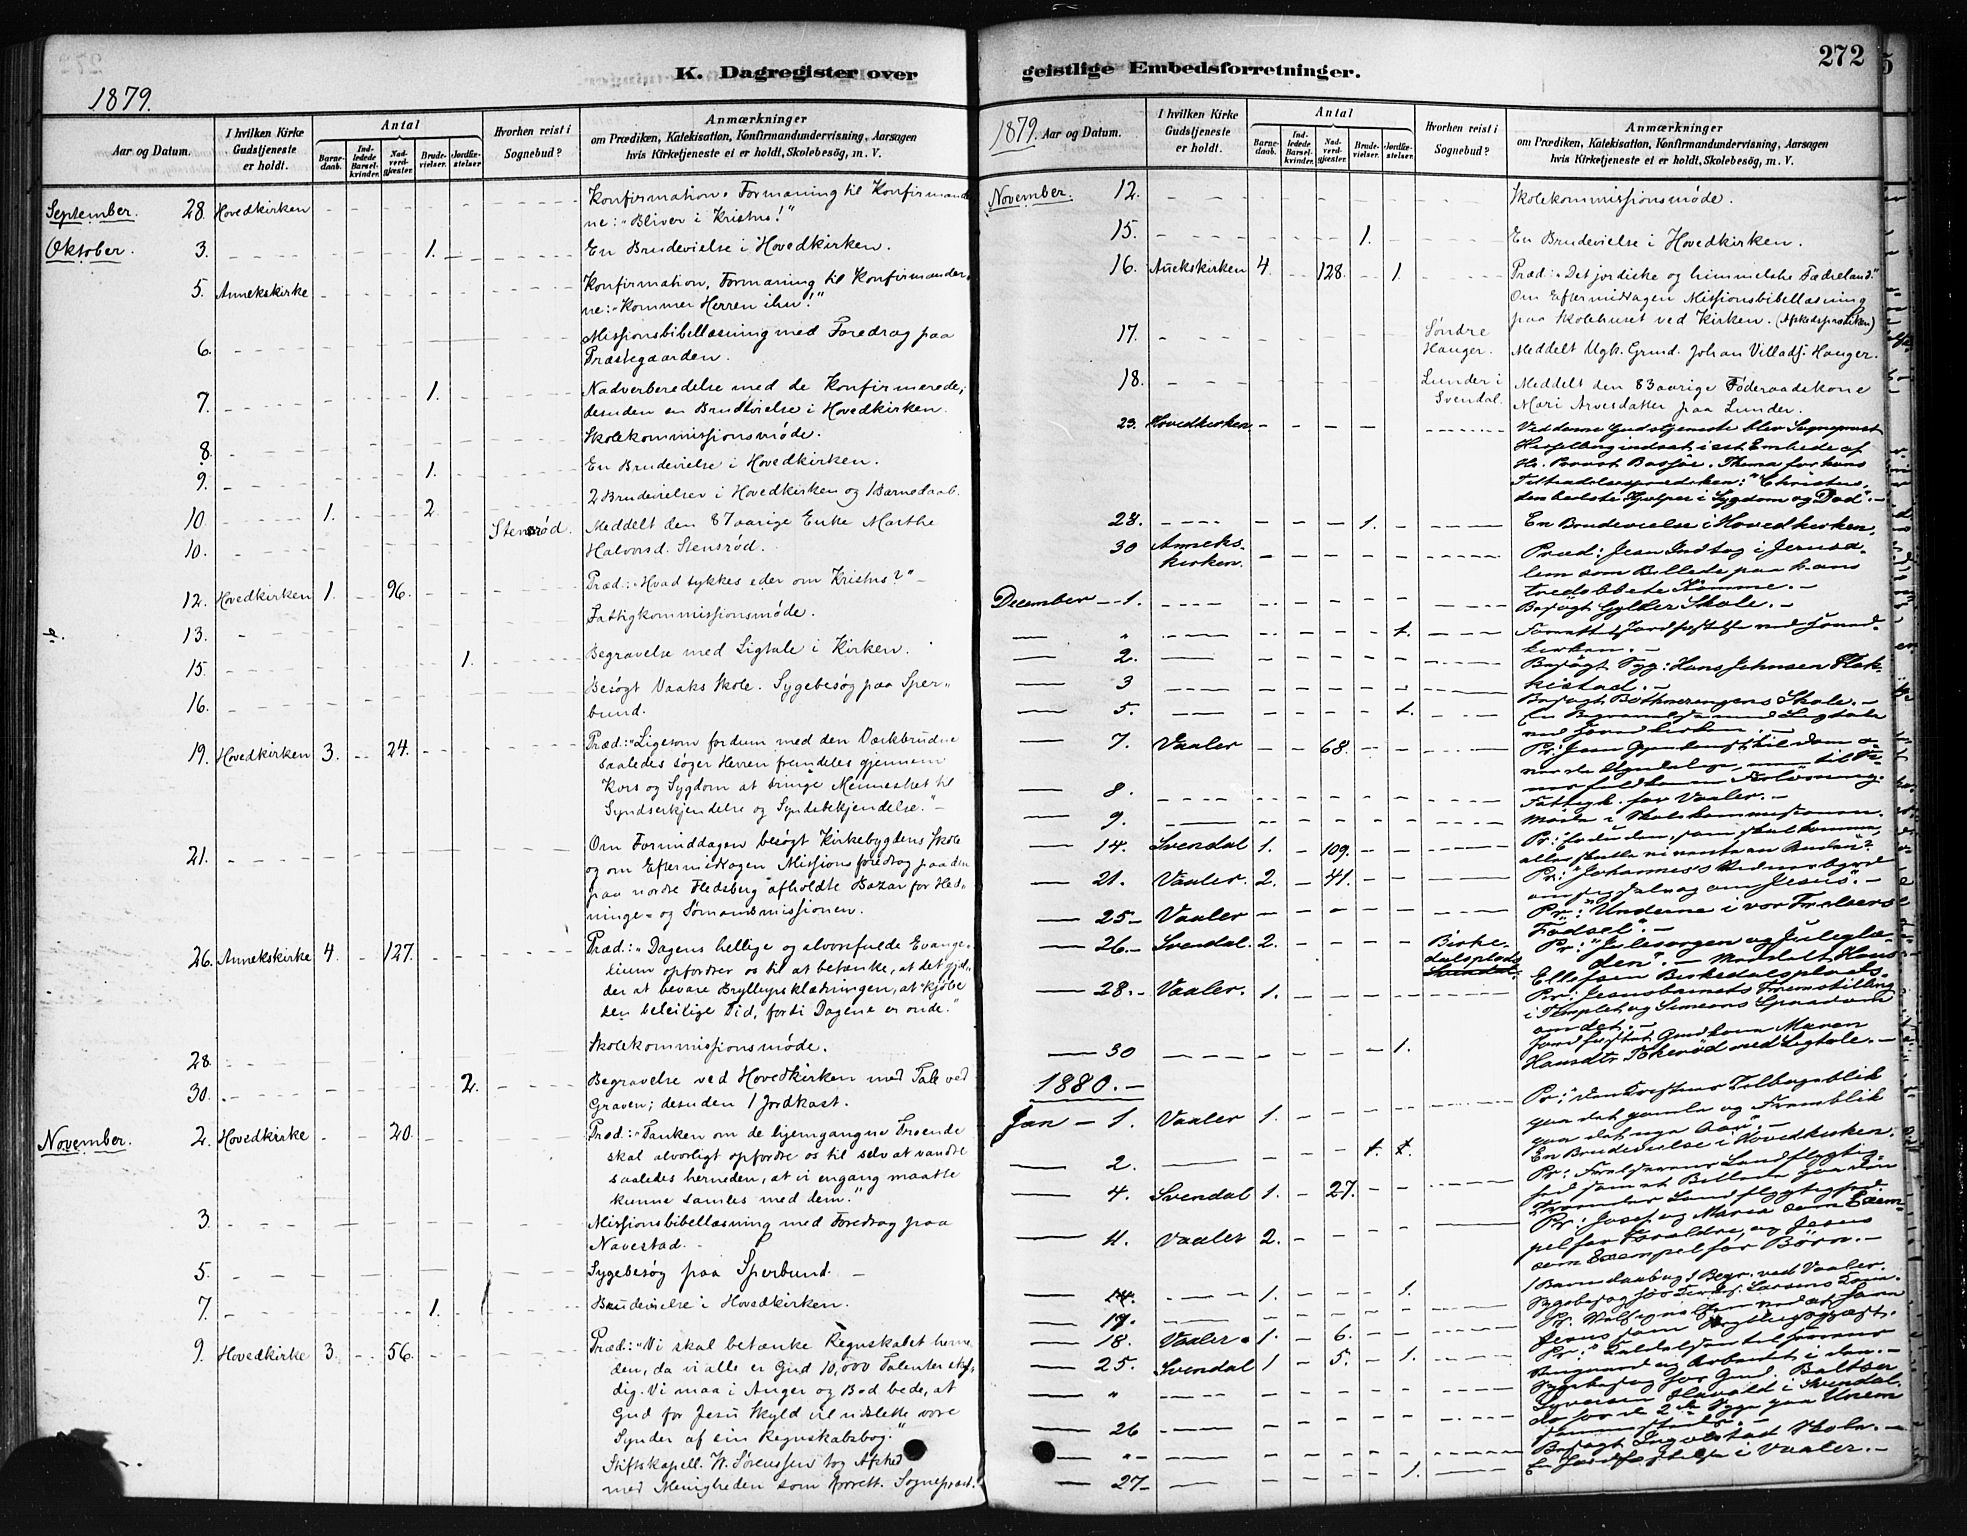 K. Dagregister over
1879.
Aar og Datum.
I hvilken Kirke Gudstjeneste er holdt.
Antal
Barnedaab.
Indledede Barselkvinder.
Nadverdgjæster.
Brudevielser.
Jordfæstelser.
Hvorhen reist i Sognebud?
Anmærkninger
om Prædiken, Katekisation, Konfirmandundervisning, Aarsagen
hvis Kirketjeneste ei er holdt, Skolebesøg, m. V.
September. 28. Hovedkirken Konfirmation. Formaning til Konfirmande
ne: "Bliver i Kristus!"
Oktober. 3. 1. En Brudevielse i Hovedkirken.
5. Annekskirke Konfirmation, Formaning til Konfirmander
ne: "Kommer Herren ihu!"
6. Missionsbibellæsning med Foredrag paa
Præstegaarden.
7. 1. Nadverberedelse med de Konfirmerede;
desuden en Brudevielse i Hovedkirken.
8. Skolekommissionsmøde.
9. 1. En Brudevielse i Hovedkirken.
10. 1. 2. 2 Brudevielser i Hovedkirken og 1 Barnedaab.
10. Stensrød. Meddelt den 87 aarige Enke Marthe
Halvorsd. Stensrød.
12. Hovedkirken 1. 96. Præd.: "Hvad tykkes eder om Kristus?"
13. Fattigkommissionsmøde.
15. 1. Begravelse med Ligtale i Kirken.
16. Besøgt Vaaks Skole. Sygebesøg paa Sper-
bund.
19. Hovedkirken 3. 24. Præd.: "Ligesom fordum med den Værkbrudne
saaledes søger Herren fremdeles gjennem
Kors og Sygdom at bringe Mennesket til
Syndserkjendelse og Syndsbekjendelse."
21. Om Formiddagen besøgt Kirkebygdens Skole
og om Eftermiddagen Missionsforedrag paa den
paa nordre Fledsberg afholdte Bazar for Hed-
ninge- og Sømandsmissionen.
26. Annekskirke 4. 127. Præd.: "Dagens hellige og alvorsfulde Evange-
lium opfordrer os til at betænke, at det gjæl-
der at bevare Bryllupsklædningen, at kjøbe
den beleilige Tid, fordi Dagene er onde."
28. Skolekommissionsmøde.
30. 2. Begravelse ved Hovedkirken med Tale ved
Graven; desuden 1 Jordkast.
November. 2. Hovedkirke 20. Præd.: "Tanken om de hjemgangne Troende
skal alvorligt opfordre os til selv at vandre
saaledes herneden, at vi engang maatte
kunne samles med dem."
3. Missionsbibellæsning med Foredrag paa
Navestad.
5. Sygebesøg paa Sperbund.
7. 1. Brudevielse i Hovedkirken.
9. Hovedkirke 3. 56. Præd.: "Vi skal betænke Regnskabet herne
den, da vi alle er Gud 10,000 Talenter skyl
dig. Vi maa i Anger og Bod bede, at
Gud for Jesu Skyld vil udslette vore
Synder af sin Regnskabsbog."
Stiftskapell. W. Sørenssen tog Afsked
med Menigheden som Sognepræst.
272
geistlige Embedsforretninger.
1879.
Aar og Datum.
I hvilken Kirke Gudstjeneste er holdt.
Antal
Barnedaab.
Indledede Barselkvinder.
Nadverdgjæster.
Brudevielser.
Jordfæstelser.
Hvorhen reist i Sognebud?
Anmærkninger
om Prædiken, Katekisation, Konfirmandundervisning, Aarsagen
hvis Kirketjeneste ei er holdt, Skolebesøg, m. V.
November. 12. Skolekommissionsmøde.
15. 1. En Brudevielse i Hovedkirken.
16. Annekskirken 4. 128. 1. Præd.: "Det jordiske og himmelske Fædreland."
Om Eftermiddagen Missionsbibellæsning
paa Skolehuset ved Kirken. (Afskedsprædiken)
17. Søndre
Hauger. Meddelt Ugk. Grund. Johan Villads. Hauger.
18. Lunder i
Svendal. Meddelt den 83 aarige Føderaadskone
Mari Arvesdatter paa Lunder.
23. Hovedkirken Ved denne Gudstjeneste blev Sognepræst
Hesselberg indsat i sit Embede af
Hr. Provst Bassøe. Thema for hans
Tiltrædelsesprædiken: "Christus,
den bedste Hjælper i Sygdom og Død".
28. 1. En Brudevielse i Hovedkirken.
30 Anneks-
kirken. Præd: Jesu Indtog i Jerusa-
lem som Billede paa hans
tredobbelte Komme.
December 1. Besøgt Gylder Skole.
" 1. Forrettet Jordfæstelse ved Hoved-
kirken.
2. Besøgt Syg: Hans Johnsen
3 Besøgt Skole.
5. 1. En Begravelse med Ligtale
ved Hovedkirken.
7. Vaaler 68. Pr: Jesu
8. Fattigk. for Vaaler.
9. Møde i Skolekommissionen.
14. Svendal 1. 109. Pr: "Er du den, som skal komme,
eller skulle vi vente en Anden?"
21. Vaaler. 2. 41. Pr: "Johannes's Vidnesbyrd
om sig selv og om Jesus".
25 Vaaler Pr: "Underne i vor Frelsers
Fødsel".
26 Svendal. 2. Birke-
dalsplads Pr: "Julesorgen og Juleglæ-
den". Meddelt Hans
Ellefsen Birkedalsplads.
28. Vaaler. 1. Pr: Jesusbarnets Fremstilling
i Templet og Simeons Spaadom
om det.
30 1. Jordfæstet Gudskone Maren
Hansdtr. med Ligtale.
1880.
Jan 1. Vaaler 1. Pr: "Den Kristnes Tilbageblik
paa det gamle og Fremblik
paa det nye Aar".
2. 1. 1. En Brudevielse i Hovedkirken.
4. Svendal 1. 27. Pr: Frelserens Landflygtig-
hed som et Billede paa den
Troendes Landflygtighed.
11. Vaaler 2. Pr: Josef og Maria som Exem-
pel for Forældre, og Jesus
som Exempel for Børn.
14. 1. 1. 1 Barnedaab og 1 Begr. ved Vaaler.
17. Sygebesøg hos
18. Vaaler 1. 6. Pr:
Jesus som Bryllupsgjæst.
25. Svendal 1 5. 1. Pr: "
og Arbeidet i den.
" Sygebesøg for Gmd. Baltser
Syversen i Svendal.
26
" Besøgt Ingelstad Skole.
27 1. En Jordfæstelse i Vaaler.